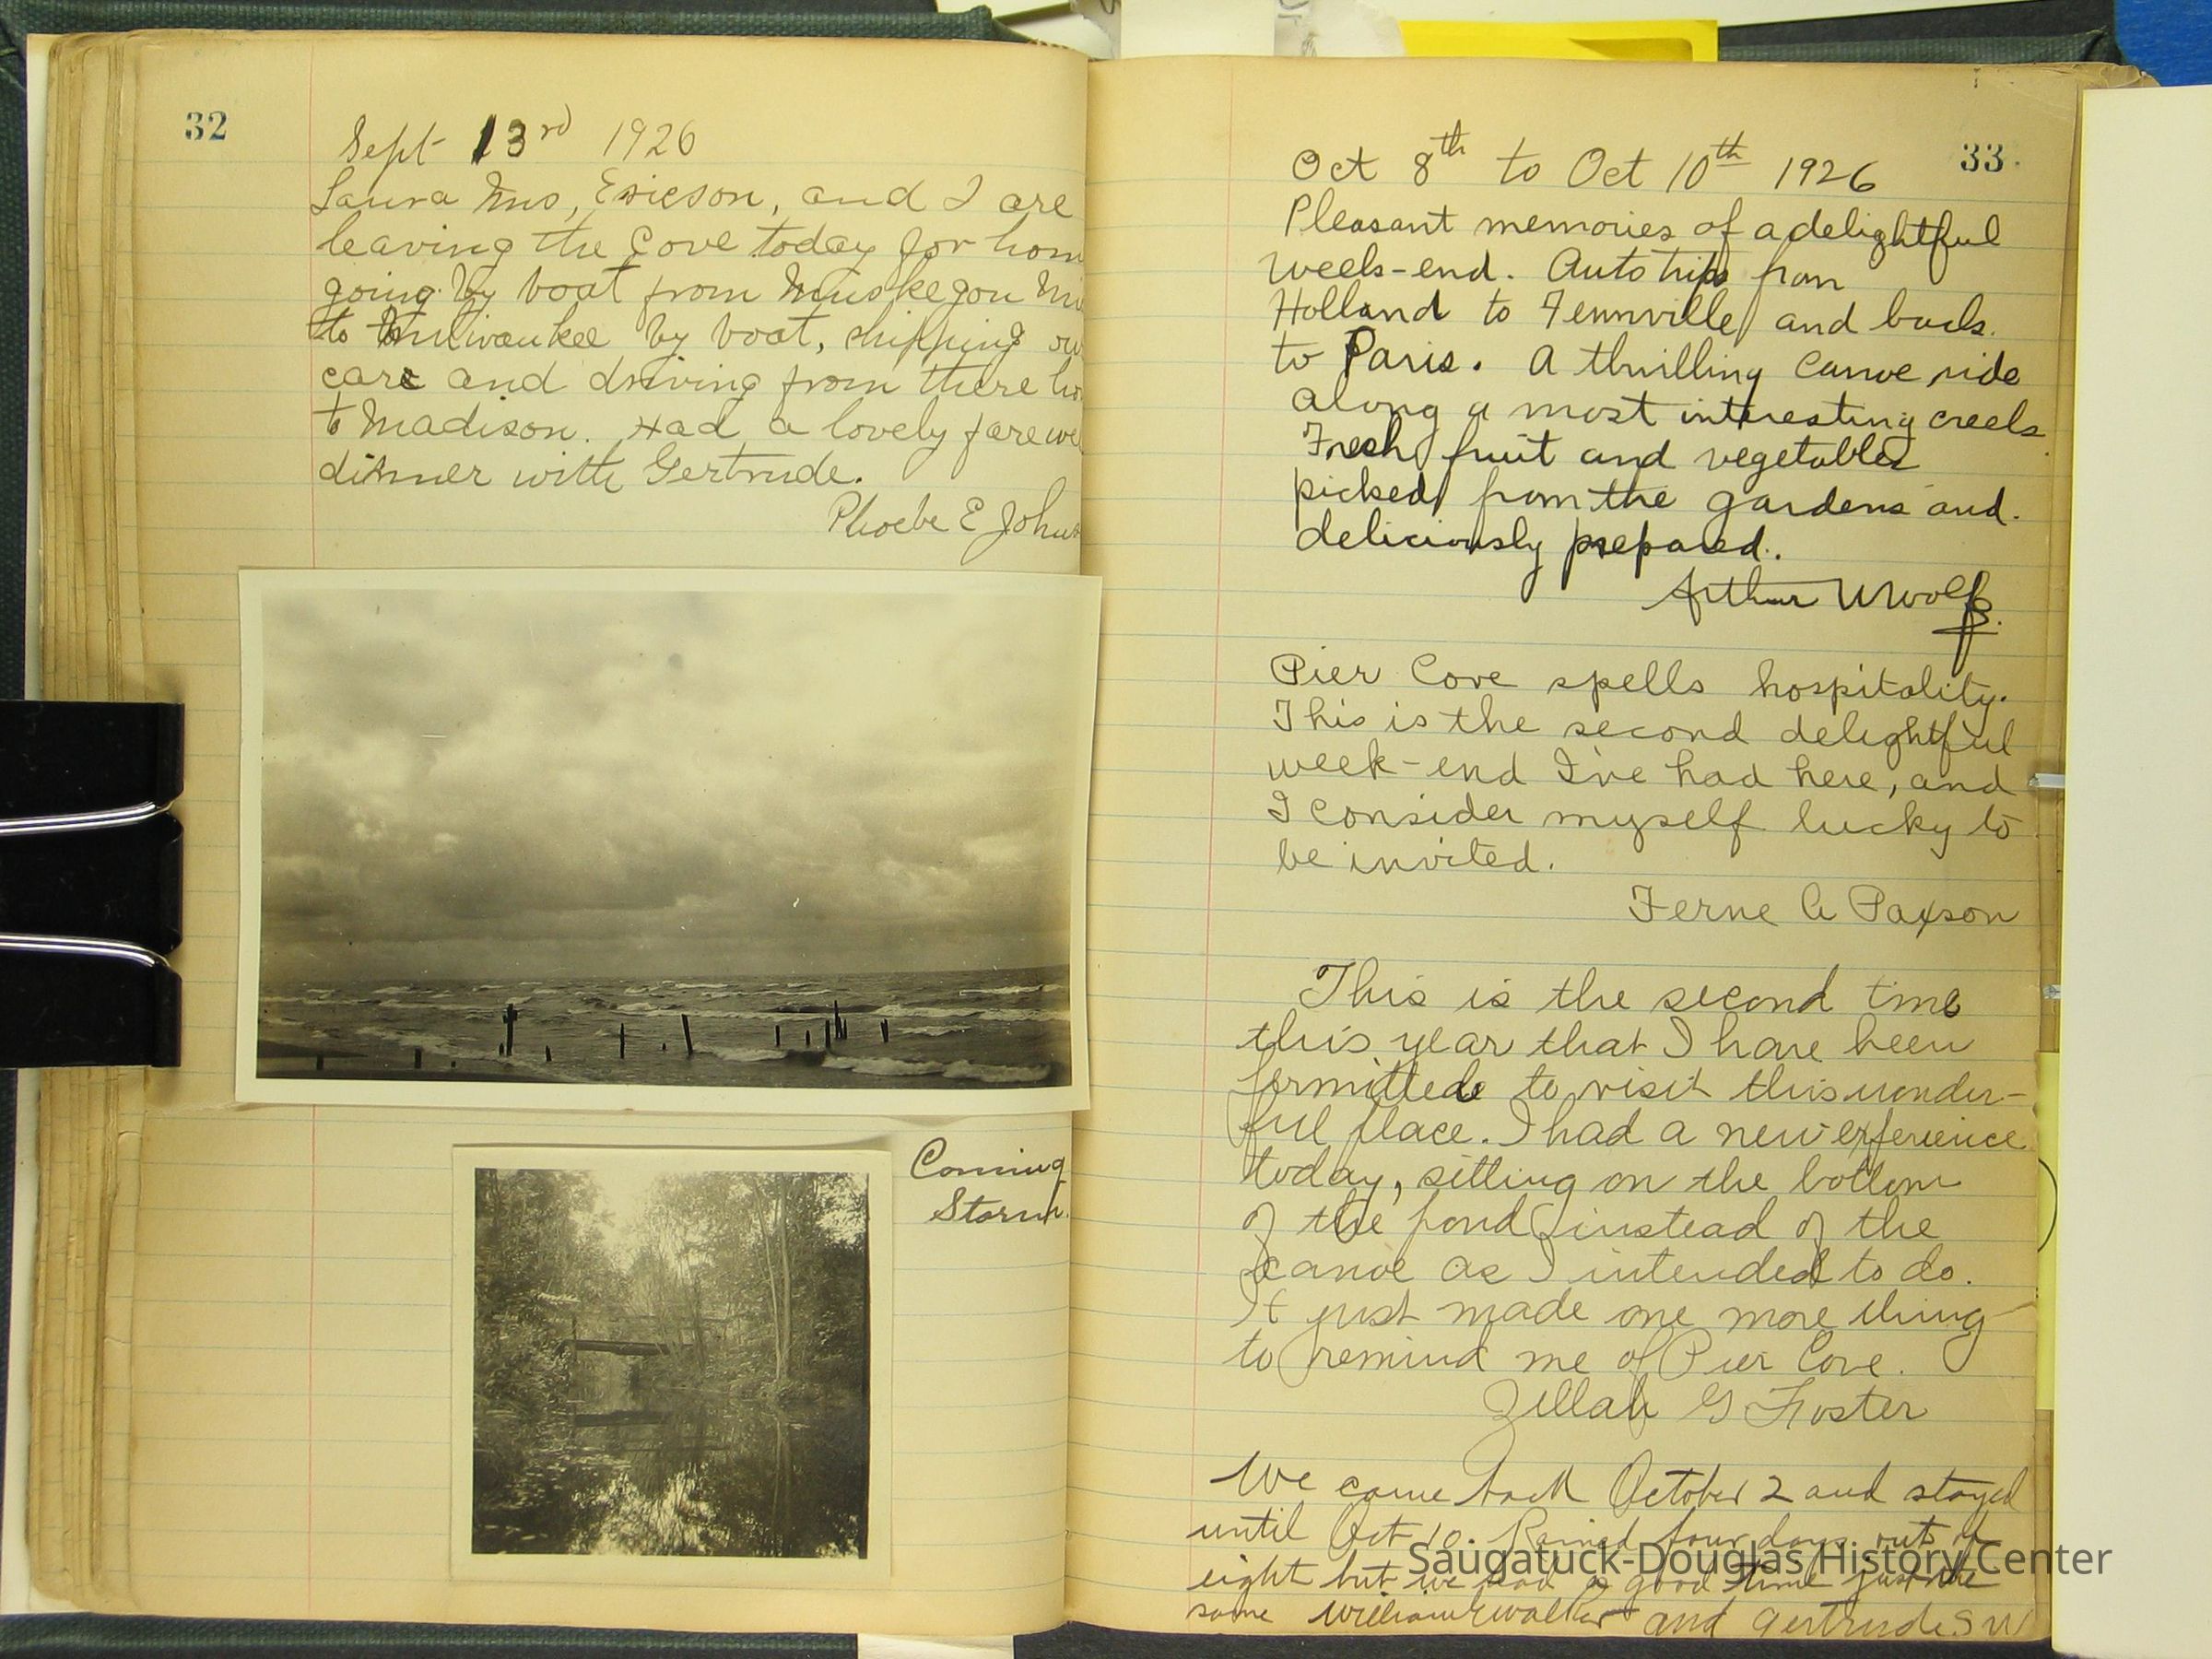 32
Sept 13rd 1926
Laura Mrs, Ericson, and I are
leaving the Cove today for hom
going by boat from Muskegon Mi
to Milwaukee by boat, shipping ou
care and driving from there ho
to Madison. Had a lovely farewe
dinner with Gertrude.
Phoebe E Johns
Coming
Storm.
33
Oct 8th to Oct 10th 1926
Pleasant memories of a delightful
week-end. Auto trips from
Holland to Fennville and back
to Paris. A thrilling canoe ride
along a most interesting creek
Fresh fruit and vegetables
picked from the gardens and
deliciously prepared.
Arthur W Wolf
Pier Cove spells hospitality.
This is the second delightful
week-end I've had here, and
I consider myself lucky to
be invited.
Ferne A Paxson
This is the second time
this year that I have been
permitted to visit this wonder-
ful place. I had a new experience
today, sitting on the bottom
of the pond instead of the
canoe as I intended to do.
It just made one more thing
to remind me of Pier Cove.
Zillah G Foster
We came back October 2 and stayed
until Oct 10. Rained four days out of
eight but we had a good time just the
same William Walker and Gertrude S W
Saugatuck-Douglas History Center